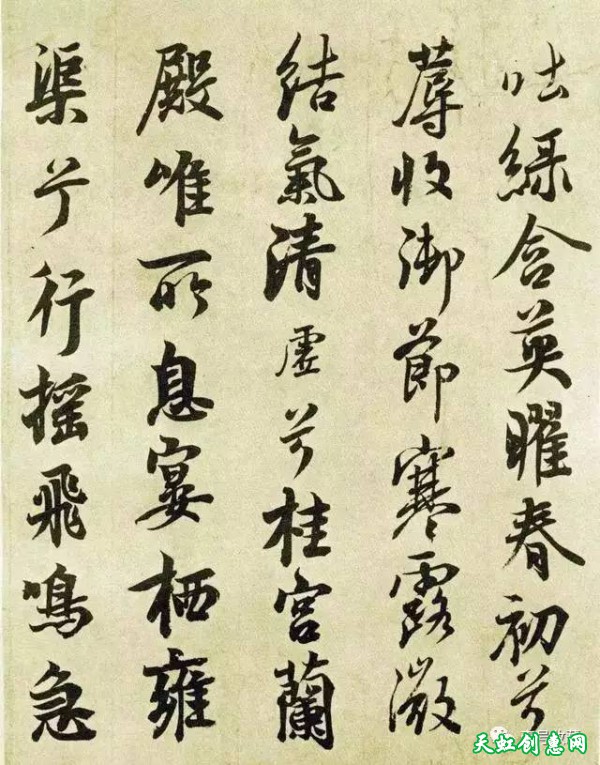 吐綠含英曜春初兮
蓐收御節寒露微
結氣清虛兮桂宮蘭
殿唯所息宴栖雍
渠兮行摇飛鳴急
天虹创意网